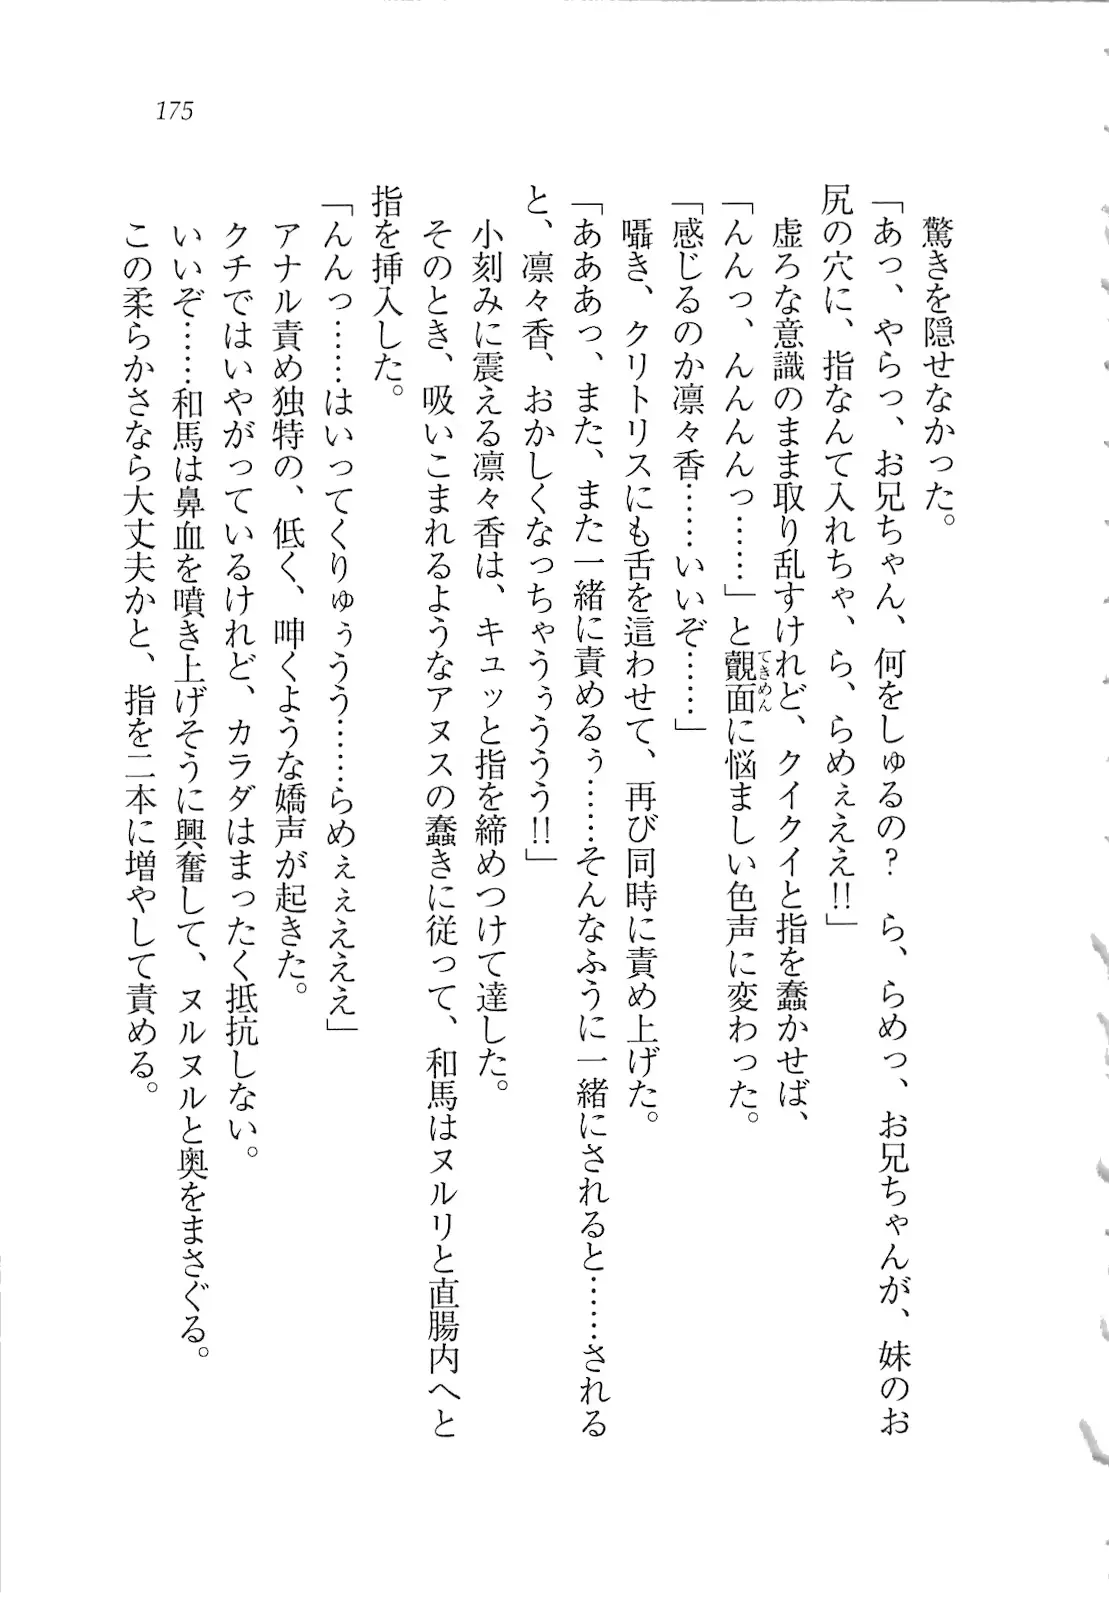 175
驚きを隠せなかった。
「あっ、やらっ、お兄ちゃん、何をしゅるの？　ら、らめっ、お兄ちゃんが、妹のお
尻の穴に、指なんて入れちゃ、ら、らめぇええ!!」
虚ろな意識のまま取り乱すけれど、クイクイと指を蠢かせば、
「んんっ、んんんんっ……」と覿面に悩ましい色声に変わった。
てきめん
「感じるのか凛々香……いいぞ……」
囁き、クリトリスにも舌を這わせて、再び同時に責め上げた。
「あああっ、また、また一緒に責めるぅ……そんなふうに一緒にされると……される
と、凛々香、おかしくなっちゃうぅううう!!」
小刻みに震える凛々香は、キュッと指を締めつけて達した。
そのとき、吸いこまれるようなアヌスの蠢きに従って、和馬はヌルリと直腸内へと
指を挿入した。
「んんっ……はいってくりゅぅうう……らめぇぇえええ」
アナル責め独特の、低く、呻くような嬌声が起きた。
クチではいやがっているけれど、カラダはまったく抵抗しない。
いいぞ……和馬は鼻血を噴き上げそうに興奮して、ヌルヌルと奥をまさぐる。
この柔らかさなら大丈夫かと、指を二本に増やして責める。